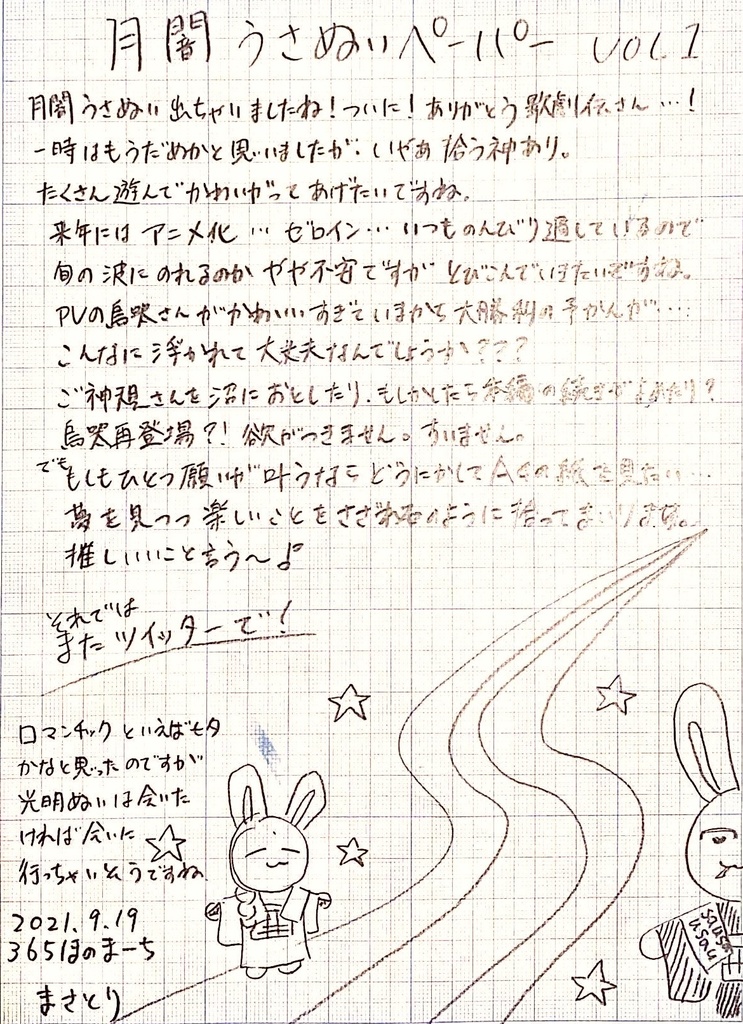 月闇 うさぬいペーパー VOL.1
月闇うさぬい出ちゃいましたね!ついに!ありがとう歌劇伝さん…!
一時はもうだめかと思いましたが、いやぁ拾う神あり。
たくさん遊んでかわいがってあげたいですね。
来年にはアニメ化…ゼロイン…いつものんびり過しているので
旬の波にのれるのかやや不安ですがとびこんでいきたいですね。
PVの烏哭さんがかわいいすぎていまから大勝利の予かんが…
こんなに浮かれて大丈夫なんでしょうか???
ご神視さんを沼におとしたり、もしかしたら本編の続きがよめたり?
烏哭再登場?!欲がつきません。すいません。
でももしもひとつ願いが叶うならどうにかしてA4の紙を見たい…
夢を見つつ楽しいことをさざれ石のように拾ってまいります。
推しいいこと言う〜♪
それでは
またツイッターで!
ロマンチックといえば七夕
かなと思ったのですが
光明ぬいは会いた
ければ会いに
行っちゃいそうですね
2021.9.19
365ほのまーち
まさとり
usau